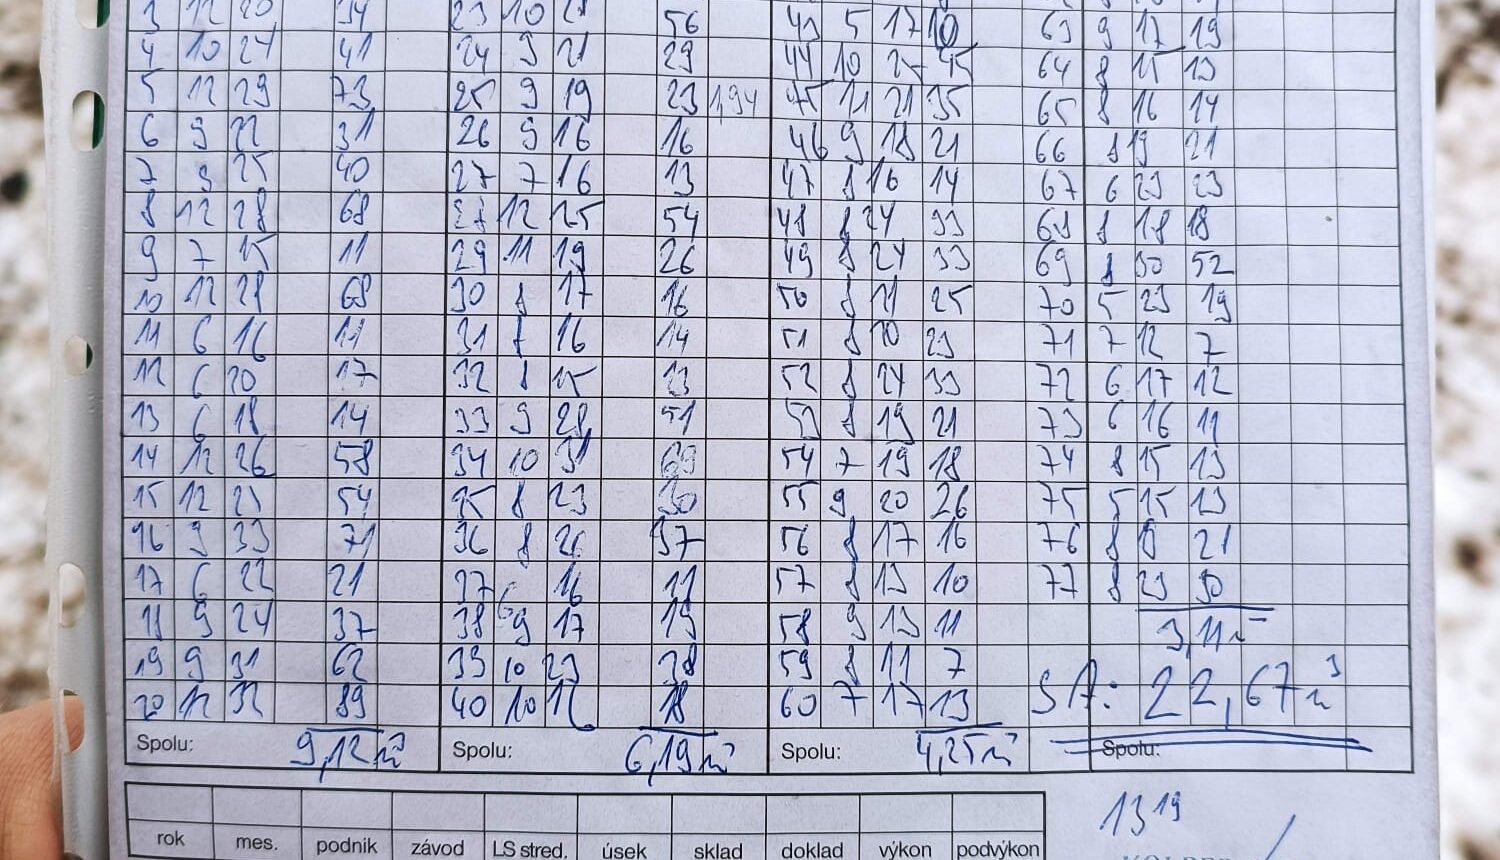 3 12 20 34 23 10 28 56 43 5 17 10 63 9 17 19
4 10 24 41 24 9 21 29 44 10 25 45 64 8 15 13
5 12 29 73 25 9 19 23 1,94 45 11 21 35 65 8 16 14
6 9 22 31 26 9 16 16 46 9 18 21 66 8 19 21
7 9 25 40 27 7 16 13 47 8 16 14 67 6 23 23
8 12 28 68 28 12 25 54 48 8 24 33 68 8 18 18
9 7 15 11 29 11 19 26 49 8 24 33 69 8 30 52
10 12 28 68 30 8 17 16 50 8 21 25 70 5 23 19
11 6 16 11 31 7 16 14 51 8 20 23 71 7 12 7
12 6 20 17 32 8 15 13 52 8 24 33 72 6 17 12
13 6 18 14 33 9 28 51 53 8 19 21 73 6 16 11
14 12 26 58 34 10 31 69 54 7 19 18 74 8 15 13
15 12 25 54 35 8 23 30 55 9 20 26 75 5 15 13
16 9 33 71 36 8 26 37 56 8 17 16 76 8 21
17 6 22 21 37 6 16 11 57 8 13 10 77 8 23 30
18 9 24 37 38 9 17 19 58 9 13 11 3,11 m
19 9 31 62 39 10 23 38 59 8 11 7
20 12 32 89 40 10 16 18 60 7 17 13 SA: 22,67 m³
Spolu: 9,12 m³ Spolu: 6,19 m³ Spolu: 4,25 m³ Spolu:
13 19
rok mes. podnik závod LS stred. úsek sklad doklad výkon podvýkon